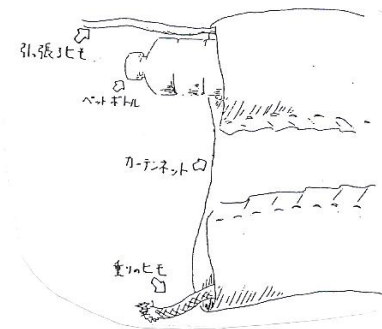 引っ張るヒモ
ペットボトル
カーテンネット
重りのヒモ